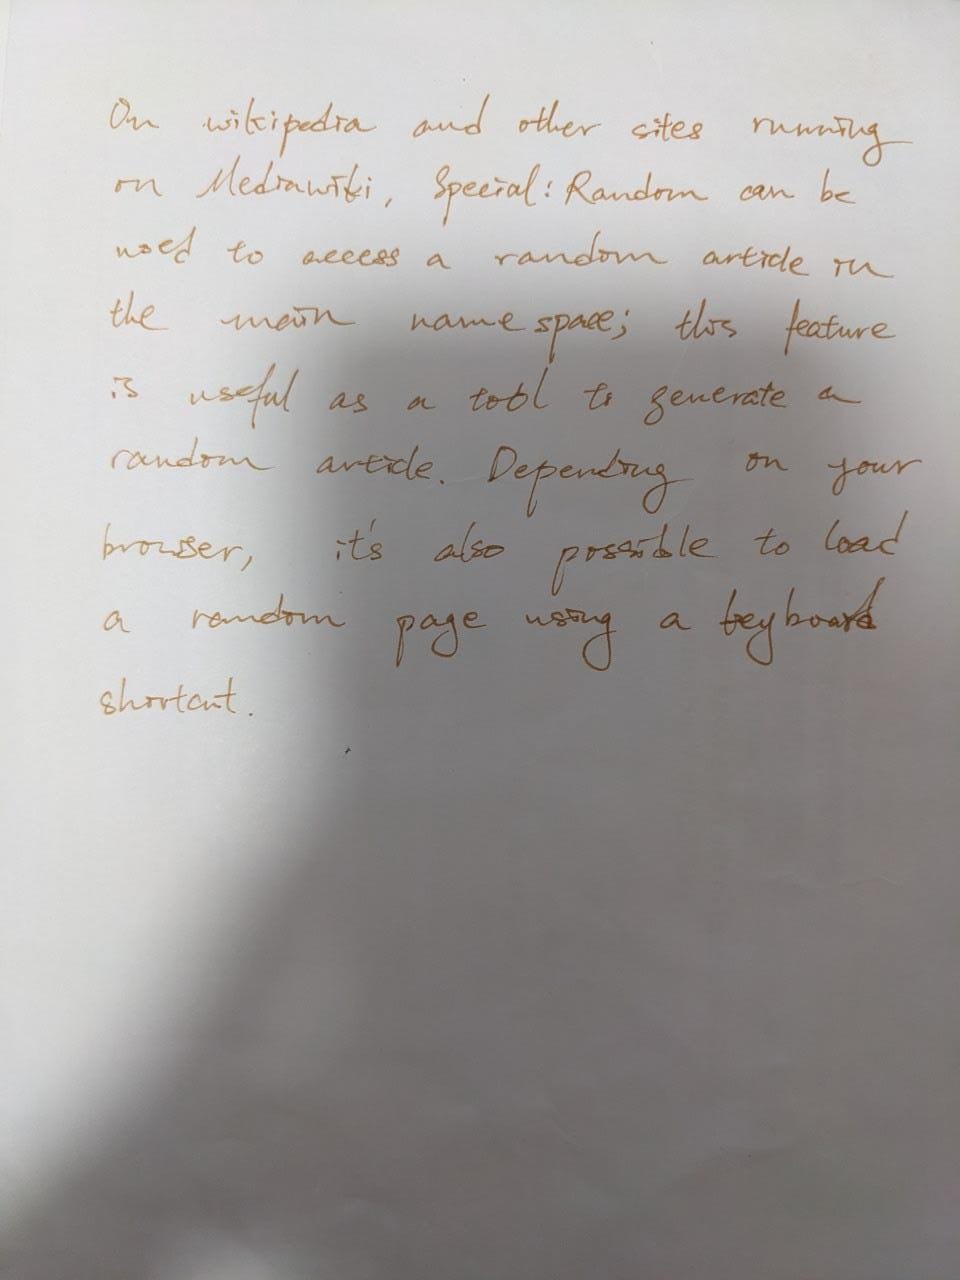 On wikipedia and other sites running
on Mediawiki, Special: Random can be
used to access a random article in
the main namespace; this feature
is useful as a tool to generate a
random article. Depending on your
browser, it's also possible to load
a random page using a keyboard
shortcut.